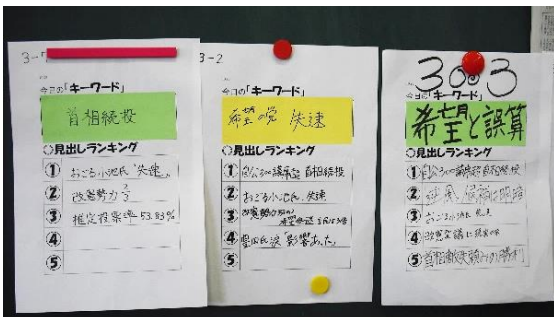 3-1
今日の「キーワード」
首相続投
〇見出しランキング
① おごる小池氏"失速"
② 改憲勢力
③ 推定投票率 53.83%
④
⑤
3-2
今日の「キーワード」
希望の党 失速
〇見出しランキング
① 自公300議席超 首相続投
② おごる小池氏、失速
③ 改憲勢力
④ 豊田氏涙「影響あった」
⑤
3の3
今日の「キーワード」
希望と誤算
〇見出しランキング
① 自公300議席超首相続投
② 候補は明暗
③ おごる小池氏
④ 改憲発議に現実味
⑤ 首相敵失頼みの勝利